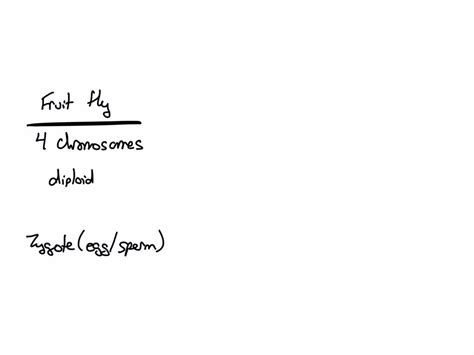 Fruit fly
4 chromosomes
diploid
Zygote (egg/sperm)